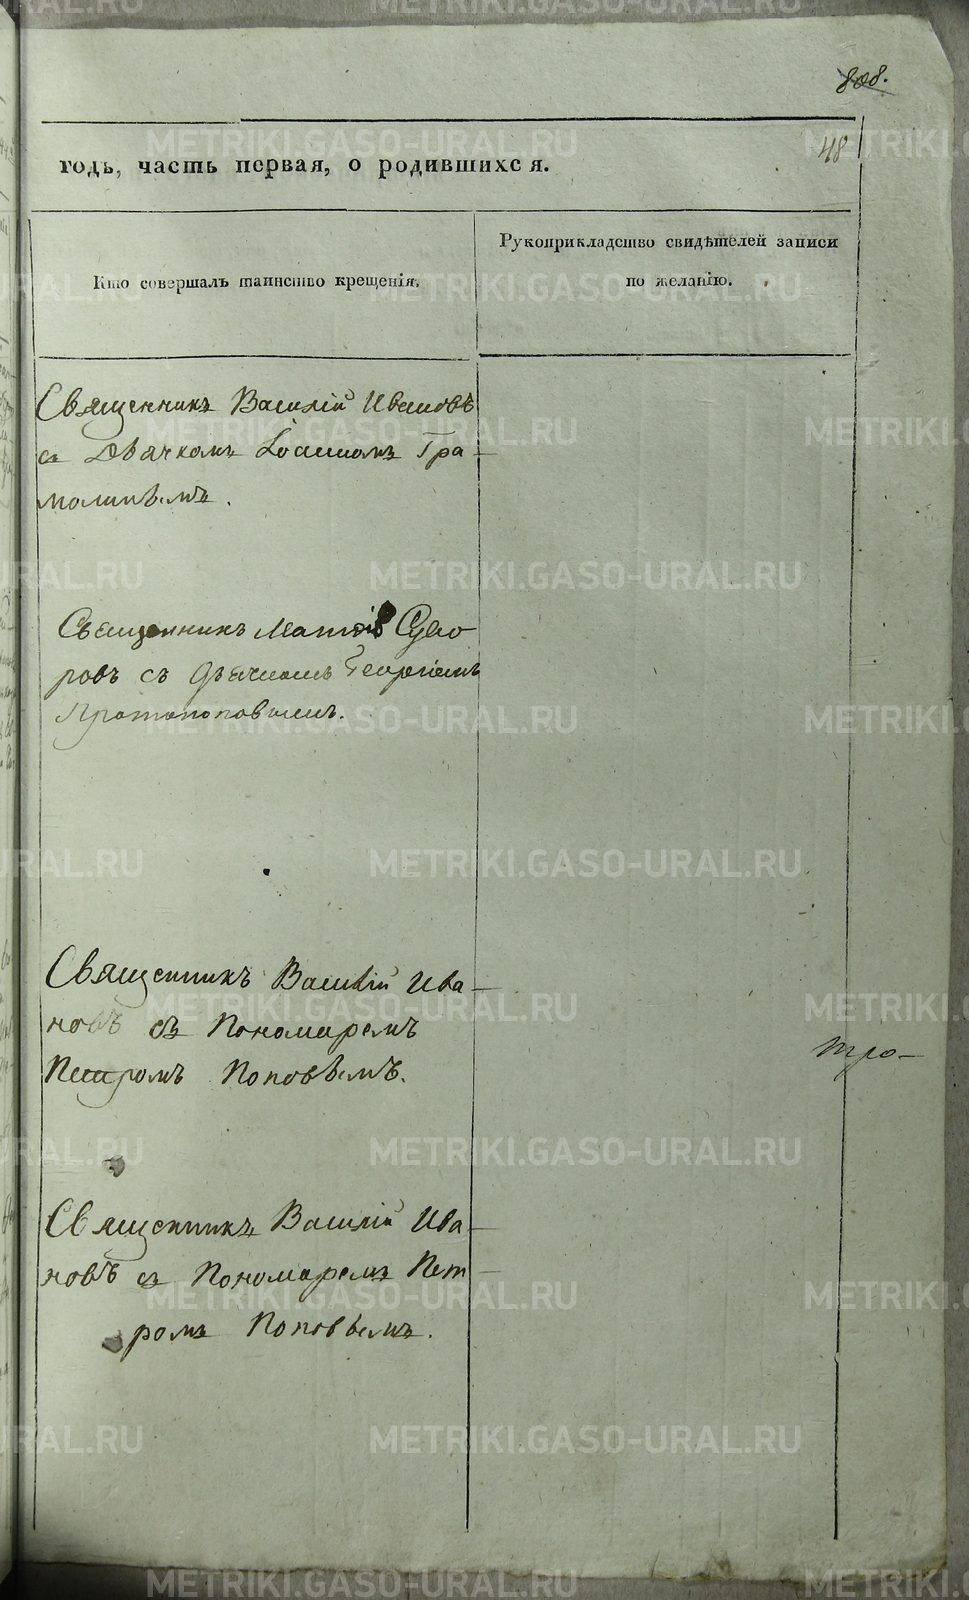 808.
48
годъ, часть первая, о родившихся.
Кто совершалъ таинство крещенія.
Рукоприкладство свидѣтелей записи
по желанію.
Священникъ Василій Ивановъ
съ Дьячкомъ Іоанномъ Гра-
молинымъ.
Священникъ Матѳій Суво
ровъ съ дьячкомъ Георгіемъ
Протопоповымъ.
Священникъ Василій Ива-
новъ съ Пономаремъ
Петромъ Поповымъ.
тро-
Священникъ Василій Ива-
новъ съ Пономаремъ Пет-
ромъ Поповымъ.
METRIKI.GASO-URAL.RU